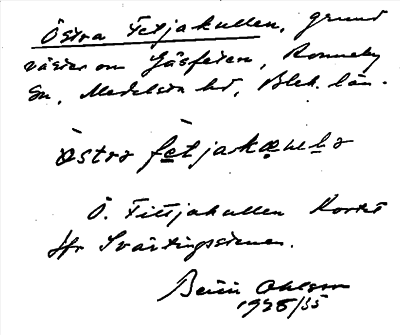 Östra Fetjakullen, grund
väster om Gåsfeten, Ronneby
sn, Medelsta hd, Blek. län.
östra fetjakullen
Ö. Fittjakullen Kortet
Jfr Svärtingsstenen.
Ohlsson
1928/35